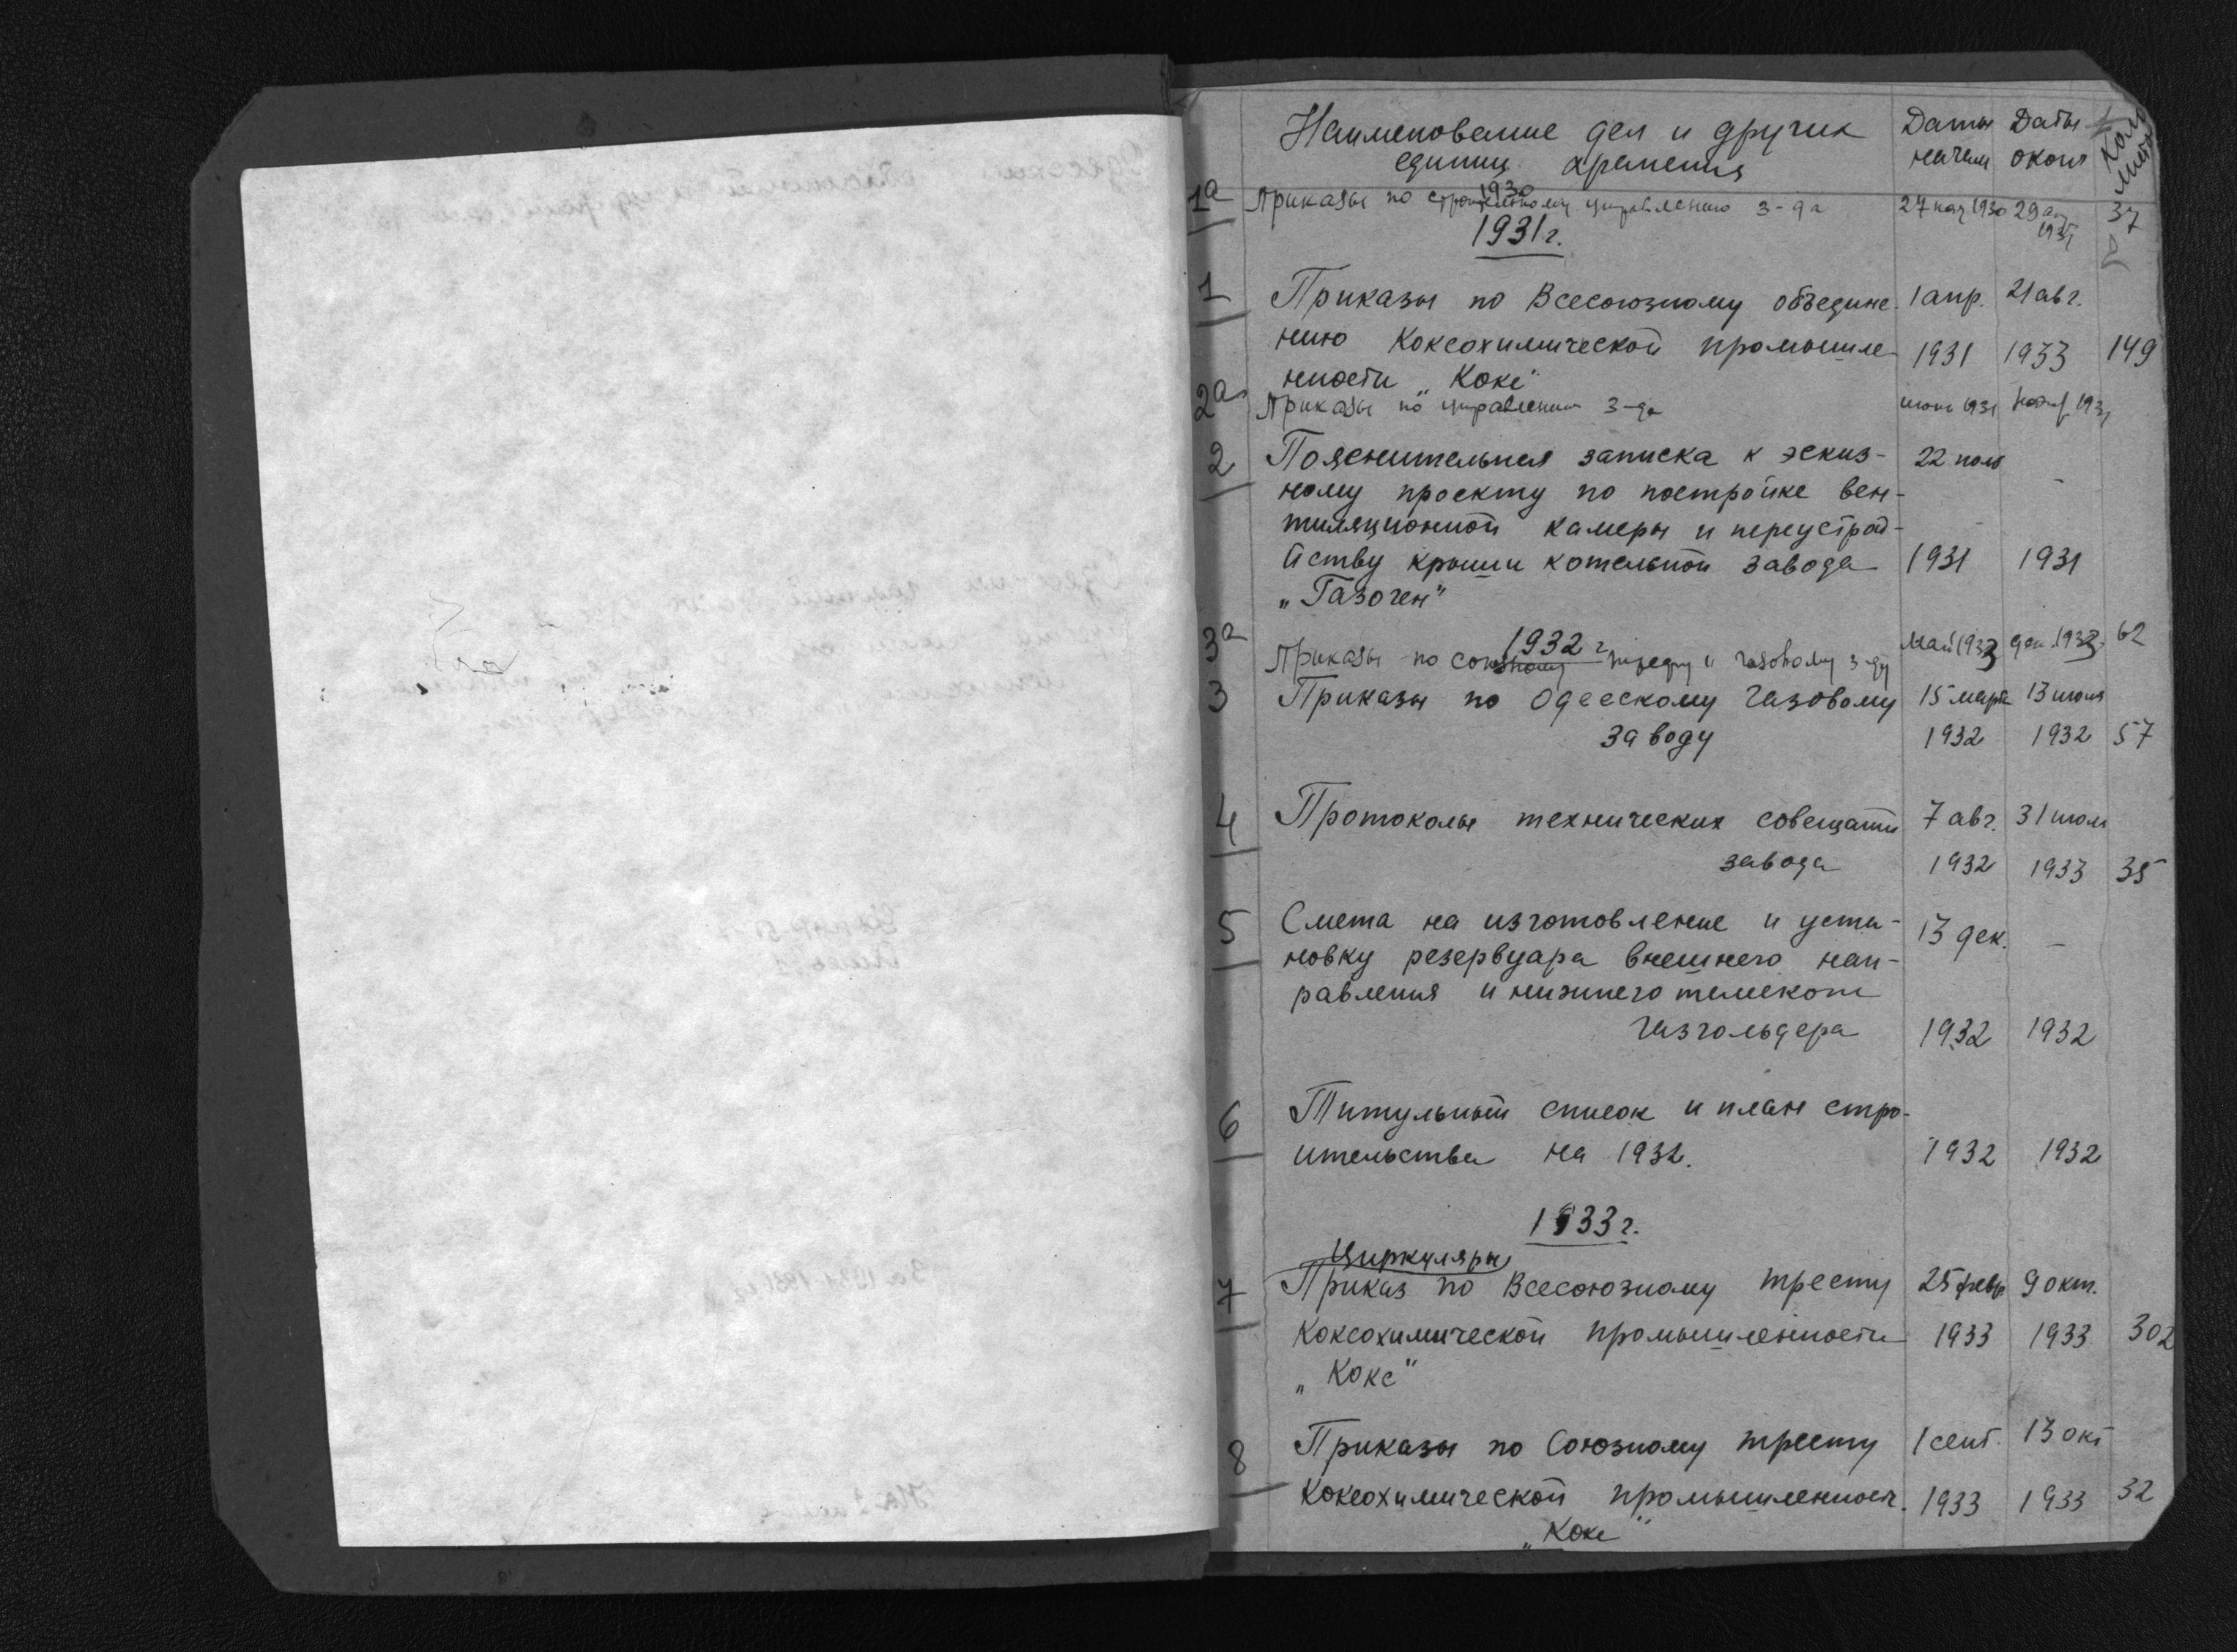 Наименование дел и других Даты Даты Кол
единиц хранения начала оконч листов
1930
1а Приказы по строительному управлению з-да 27 1930 29 авг 37
1931
1931 г.
1 Приказы по Всесоюзному объедине- 1 апр. 21 авг.
нию Коксохимической промышле- 1931 1933 149
нности „Кокс"
2а Приказы по управлению з-да 1931 1931
2 Пояснительная записка к эскиз- 22 -
ному проекту по постройке вен-
тиляционной камеры и переустрой-
йству крыши котельной завода 1931 1931
„Газоген"
1932 г.
3а Приказы по союзному тресту и газовому з-ду май 1933 дек. 1933 62
3 Приказы по Одесскому Газовому 15 марта 13 июля
заводу 1932 1932 57
4 Протоколы технических совещаний 7 авг. 31 июля
завода 1932 1933 35
5 Смета на изготовление и уста- 13 дек. -
новку резервуара внешнего нап-
равления и нижнего телескопа
газгольдера 1932 1932
6 Титульный список и план стро-
ительства на 1932. 1932 1932
1933 г.
Циркуляры
7 Приказ по Всесоюзному тресту 25 февр 9 окт.
Коксохимической промышленности 1933 1933 302
„Кокс"
8 Приказы по Союзному тресту 1 сент. 13 окт
Коксохимической промышленност. 1933 1933 32
„Кокс"